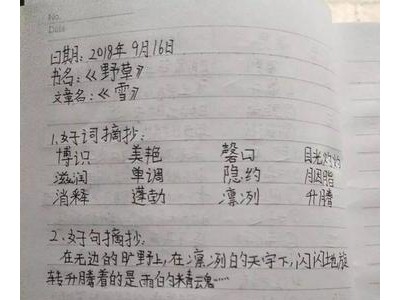 No.
Date
日期：2018年9月16日
书名：《野草》
文章名：《雪》
1.好词摘抄：
博识 美艳 磬口 目光灼灼
滋润 单调 隐约 胭脂
消释 蓬勃 凛冽 升腾
2.好句摘抄：
在无边的旷野上，在凛冽的天宇下，闪闪地旋
转升腾着的是雨的精魂……